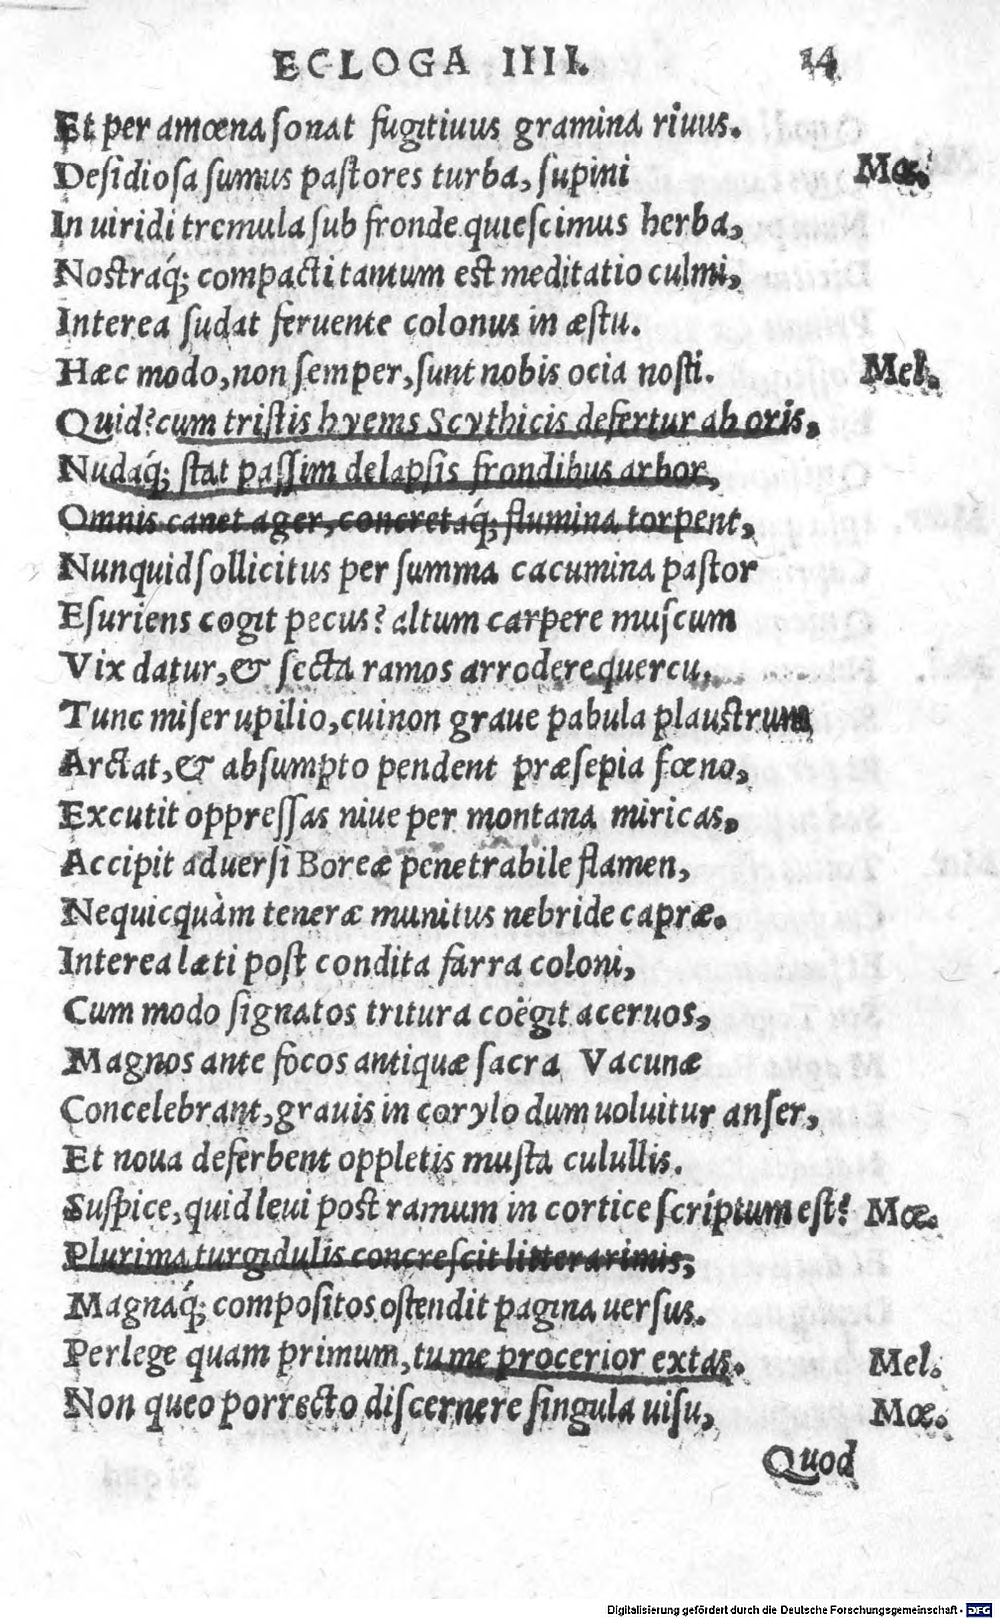 ECLOGA IIII. 14
Et per amœna ſonat fugitiuus gramina riuus.
Deſidioſa ſumus paſtores turba, ſupini Mœ.
In uiridi tremula ſub fronde quieſcimus herba,
Noſtraq́; compacti tantum eſt meditatio culmi,
Interea ſudat feruente colonus in æſtu.
Hæc modo, non ſemper, ſunt nobis ocia noſti. Mel.
Quid? cum triſtis hyems Scythicis defertur ab oris,
Nudaq́; ſtat paſſim delapſis frondibus arbor,
Omnis canet ager, concretaq́; flumina torpent,
Nunquid ſollicitus per ſumma cacumina paſtor
Eſuriens cogit pecus? altum carpere muſcum
Vix datur, & ſecta ramos arrodere quercu,
Tunc miſer upilio, cui non graue pabula plauſtrum
Arctat, & abſumpto pendent præſepia fœno,
Excutit oppreſſas niue per montana miricas,
Accipit aduerſi Boreæ penetrabile flamen,
Nequicquàm teneræ munitus nebride capræ.
Interea læti poſt condita farra coloni,
Cum modo ſignatos tritura coëgit aceruos,
Magnos ante focos antiquæ ſacra Vacunæ
Concelebrant, grauis in corylo dum uoluitur anſer,
Et noua deferbent oppletis muſta culullis.
Suſpice, quid leui poſt ramum in cortice ſcriptum eſt? Mœ.
Plurima turgidulis concreſcit litterarimis;
Magnaq́; compoſitos oſtendit pagina uerſus.
Perlege quam primum, tu me procerior extas. Mel.
Non queo porrecto diſcernere ſingula uiſu, Mœ.
Quod
Digitalisierung gefördert durch die Deutsche Forschungsgemeinschaft - DFG